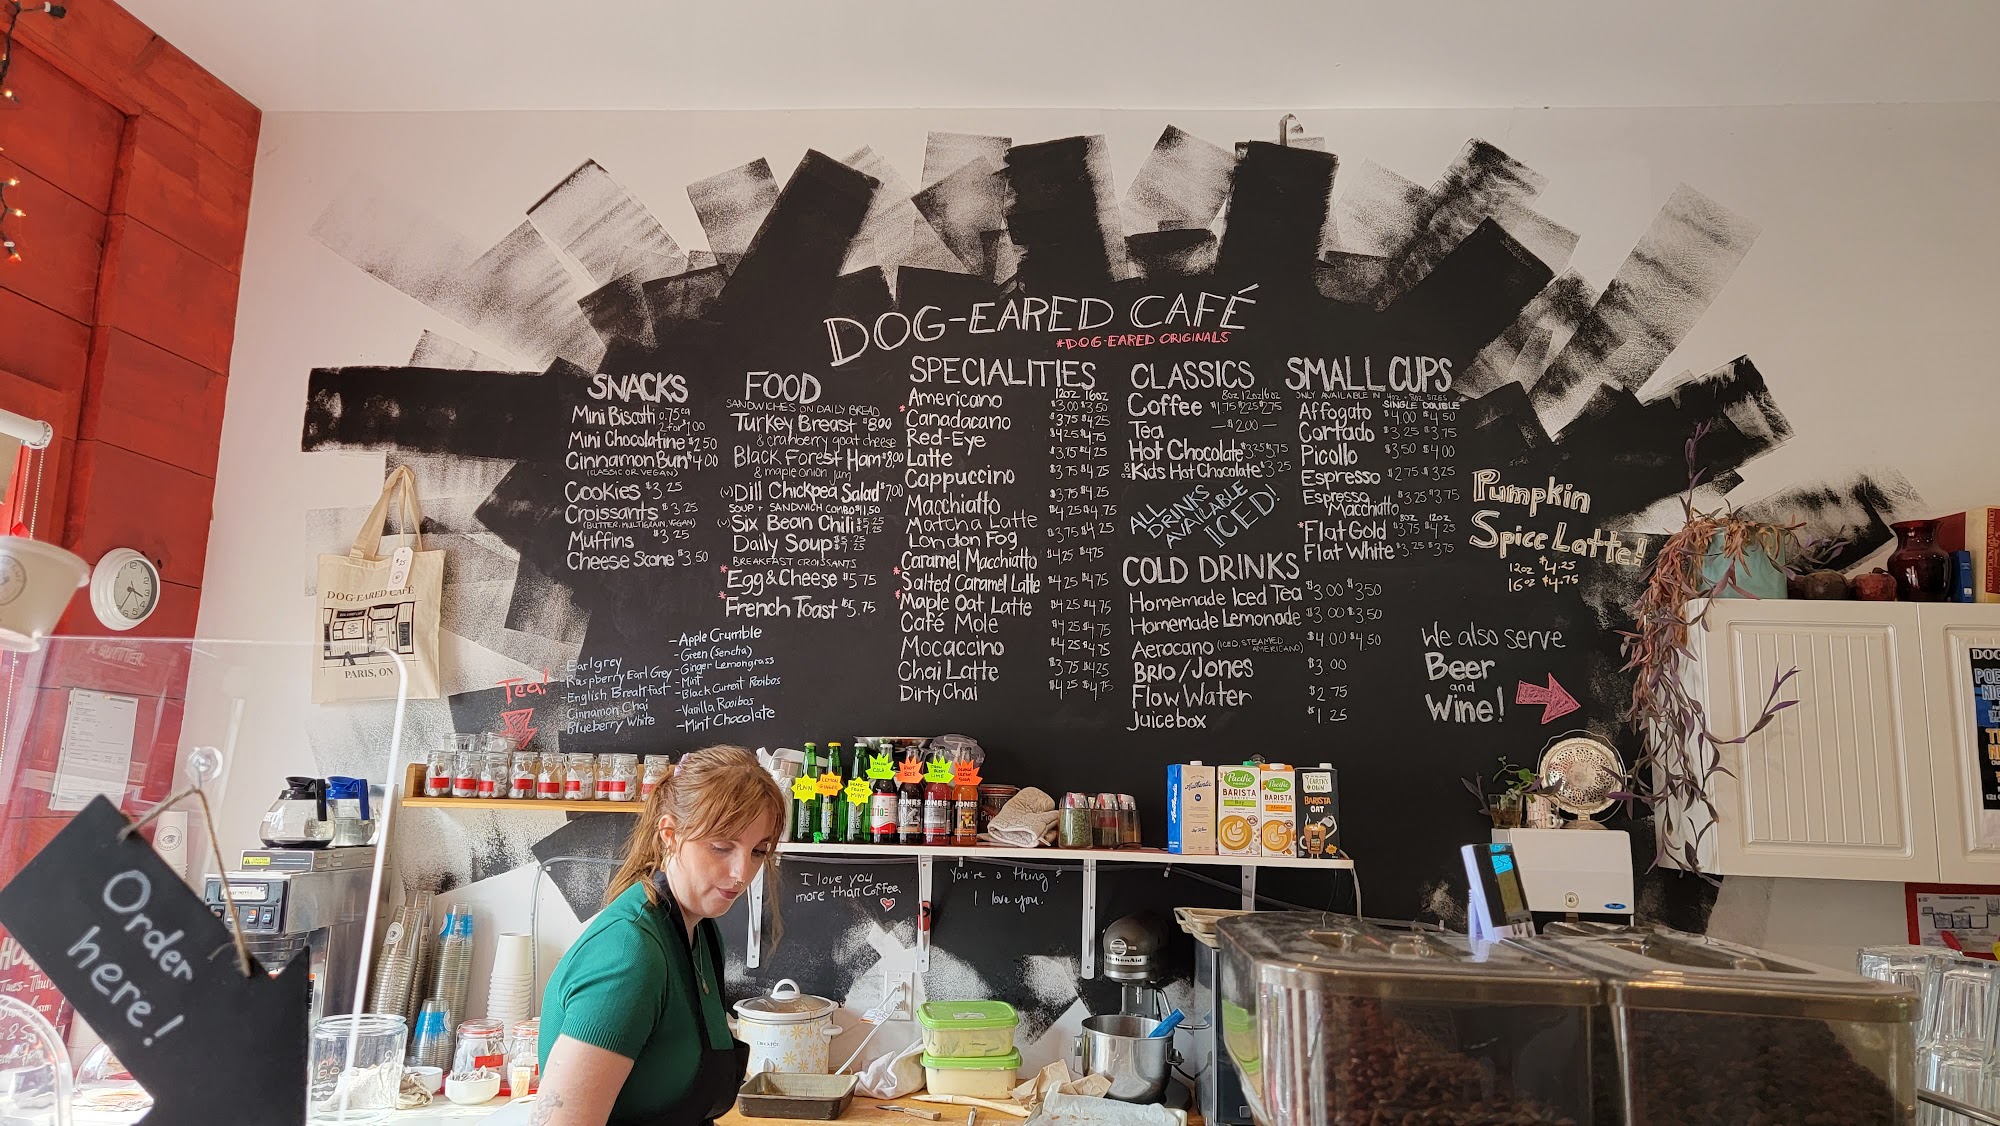 DOG-EARED CAFÉ
*DOG-EARED ORIGINALS
SNACKS
Mini Biscotti 0.75 ea
2 for $1.00
Mini Chocolatine $2.50
Cinnamon Bun $4.00
(CLASSIC OR VEGAN)
Cookies $3.25
Croissants $3.25
(BUTTER, MULTIGRAIN, VEGAN)
Muffins $3.25
Cheese Scone $3.50
FOOD
SANDWICHES ON DAILY BREAD
Turkey Breast $8.00
& cranberry goat cheese
Black Forest Ham $8.00
& maple onion jam
(v) Dill Chickpea Salad $7.00
SOUP + SANDWICH COMBO $11.50
(v) Six Bean Chili
Daily Soup
BREAKFAST CROISSANTS
*Egg & Cheese $5.75
*French Toast $5.75
SPECIALITIES
12oz 16oz
Americano $3.00 $3.50
*Canadacano $3.75 $4.25
Red-Eye $4.25 $4.75
Latte $3.75 $4.25
Cappuccino $3.75 $4.25
Macchiatto $3.75 $4.25
Matcha Latte $4.25 $4.75
London Fog $3.75 $4.25
Caramel Macchiatto $4.25 $4.75
*Salted Caramel Latte $4.25 $4.75
*Maple Oat Latte $4.25 $4.75
Café Mole $4.25 $4.75
Mocaccino $4.25 $4.75
Chai Latte $3.75 $4.25
Dirty Chai $4.25 $4.75
CLASSICS
8oz 12oz 16oz
Coffee $1.75 $2.25 $2.75
Tea — $2.00 —
Hot Chocolate $3.25 $3.75
8oz Kids Hot Chocolate $3.25
ALL
DRINKS
AVAILABLE
ICED!
COLD DRINKS
Homemade Iced Tea $3.00 $3.50
Homemade Lemonade $3.00 $3.50
Aerocano (ICED, STEAMED AMERICANO) $4.00 $4.50
BRIO/JONES $3.00
Flow Water $2.75
Juicebox $1.25
SMALL CUPS
ONLY AVAILABLE IN 4oz + 8oz SIZES
SINGLE DOUBLE
Affogato $4.00 $4.50
Cortado $3.25 $3.75
Picollo $3.50 $4.00
Espresso $2.75 $3.25
Espresso Macchiatto $3.25 $3.75
8oz 12oz
*Flat Gold $3.75 $4.25
Flat White $3.25 $3.75
Pumpkin
Spice Latte!
12oz $4.25
16oz $4.75
We also serve
Beer
and
Wine!
Tea!
-Earl grey
-Raspberry Earl Grey
-English Breakfast
-Cinnamon Chai
-Blueberry White
-Apple Crumble
-Green (Sencha)
-Ginger Lemongrass
-Mint
-Black Currant Rooibos
-Vanilla Rooibos
-Mint Chocolate
$25
DOG-EARED CAFÉ
PARIS, ON
PLAIN
LEMON GINGER
GRAPEFRUIT MINT
ROOT BEER
JONES
JONES
JONES
Pacific
BARISTA
SERIES
Pacific
BARISTA
EARTH'S OWN
BARISTA
OAT
I love you
more than Coffee
You're a thing &
I love you.
KitchenAid
CROCK POT
Order
here!
& BUTTER